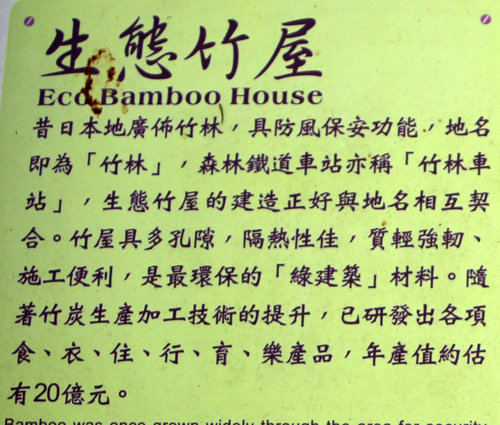 生態竹屋
Eco Bamboo House
昔日本地廣佈竹林，具防風保安功能，地名
即為「竹林」，森林鐵道車站亦稱「竹林車
站」，生態竹屋的建造正好與地名相互契
合。竹屋具多孔隙，隔熱性佳，質輕強韌、
施工便利，是最環保的「綠建築」材料。隨
著竹炭生產加工技術的提升，已研發出各項
食、衣、住、行、育、樂產品，年產值約估
有20億元。
Bamboo was once grown widely through the area for security